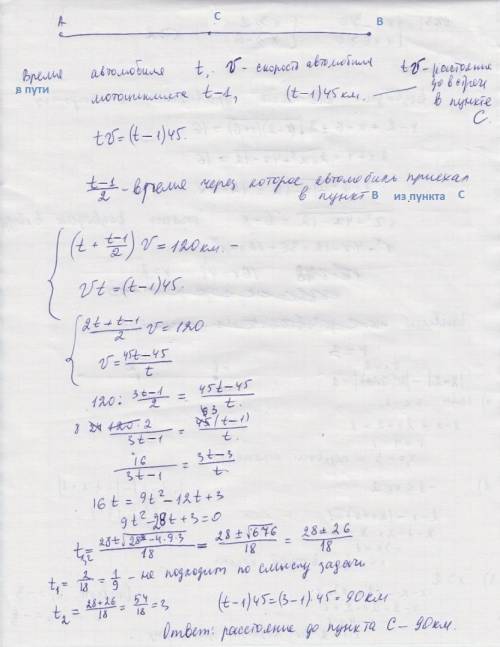 A C B
Время автомобиля t, v - скорость автомобиля tv - расстояние
в пути мотоциклиста t-1, (t-1)45 км. до встречи
в пункте
C.
tv = (t-1)45.
(t-1)/2 - время через которое автомобиль приехал
в пункт B из пункта C
(t + (t-1)/2) v = 120 км. -
vt = (t-1)45.
(2t+t-1)/2 v = 120
v = (45t-45)/t
120 : (3t-1)/2 = (45t-45)/t.
8 24 120·2/(3t-1) = 3 45(t-1)/t.
16/(3t-1) = (3t-3)/t
16t = 9t² - 12t + 3
9t² - 28t + 3 = 0
t₁,₂ = (28±√(28²-4·9·3))/18 = (28±√676)/18 = (28±26)/18
t₁ = 2/18 = 1/9 - не подходит по смыслу задачи
t₂ = (28+26)/18 = 54/18 = 3 (t-1)45 = (3-1)·45 = 90 км
Ответ: расстояние до пункта C - 90 км.